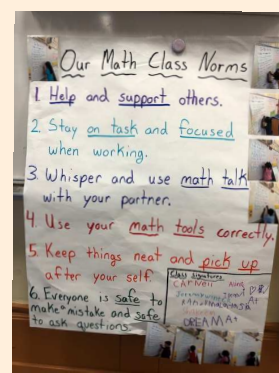 Our Math Class Norms
1. Help and support others.
2. Stay on task and focused
when working.
3. Whisper and use math talk
with your partner.
4. Use your math tools correctly.
5. Keep things neat and pick up
after your self.
6. Everyone is safe to
make a mistake and safe
to ask questions.
Class Signatures